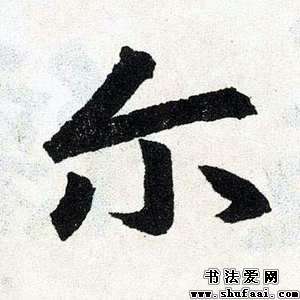 尔
书法爱网
www.shufaai.com